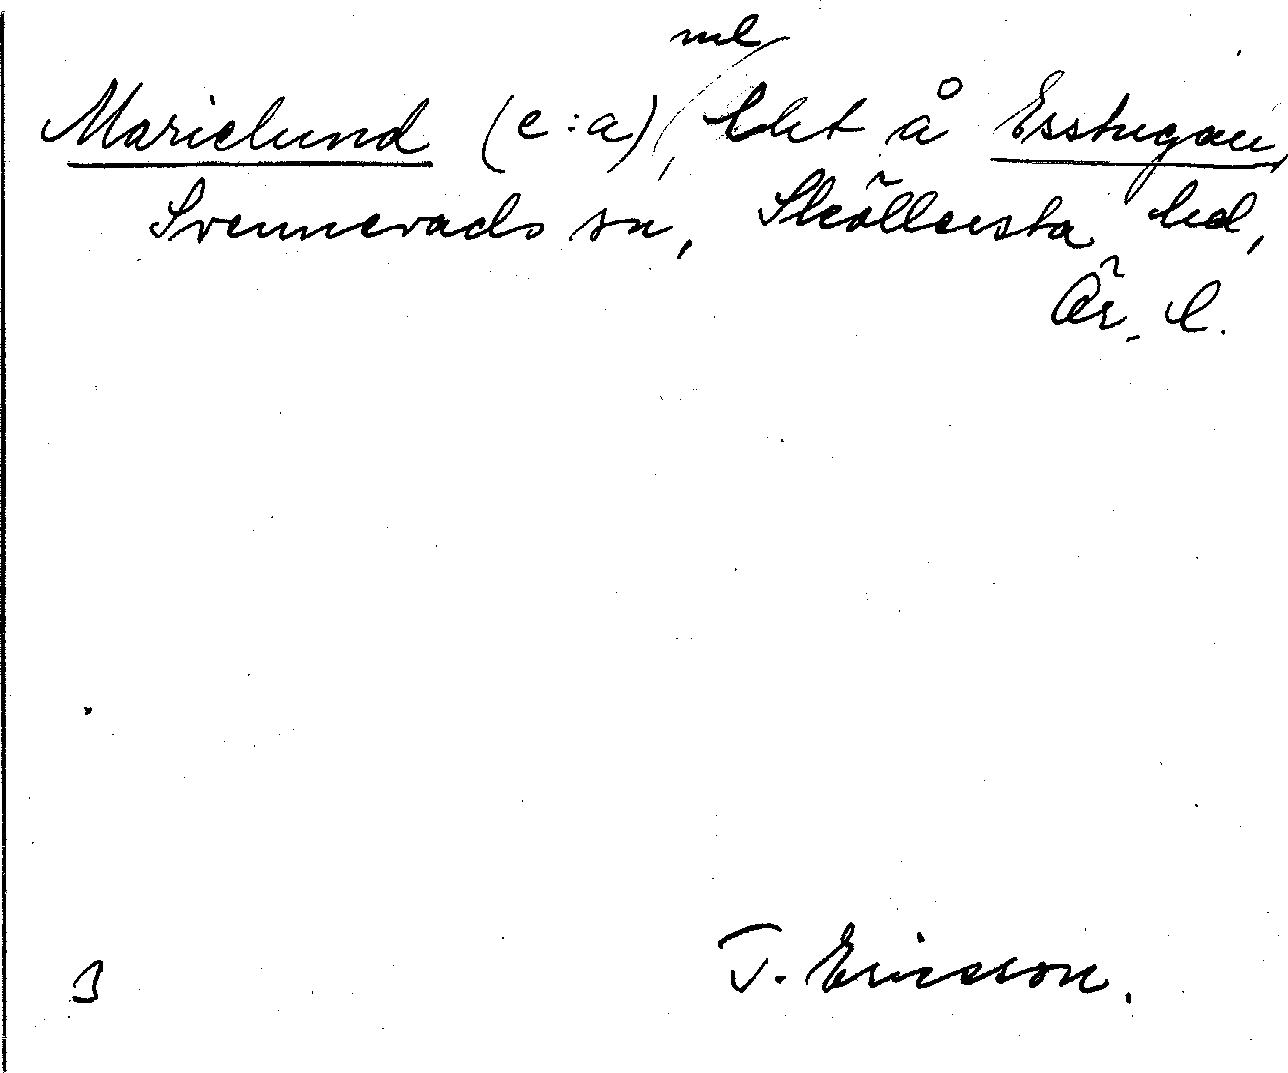 ml
Marielund (e:a), lht å Esstugan,
Svennevads sn, Sköllersta hd,
Ör. l.
T. Ericsson.